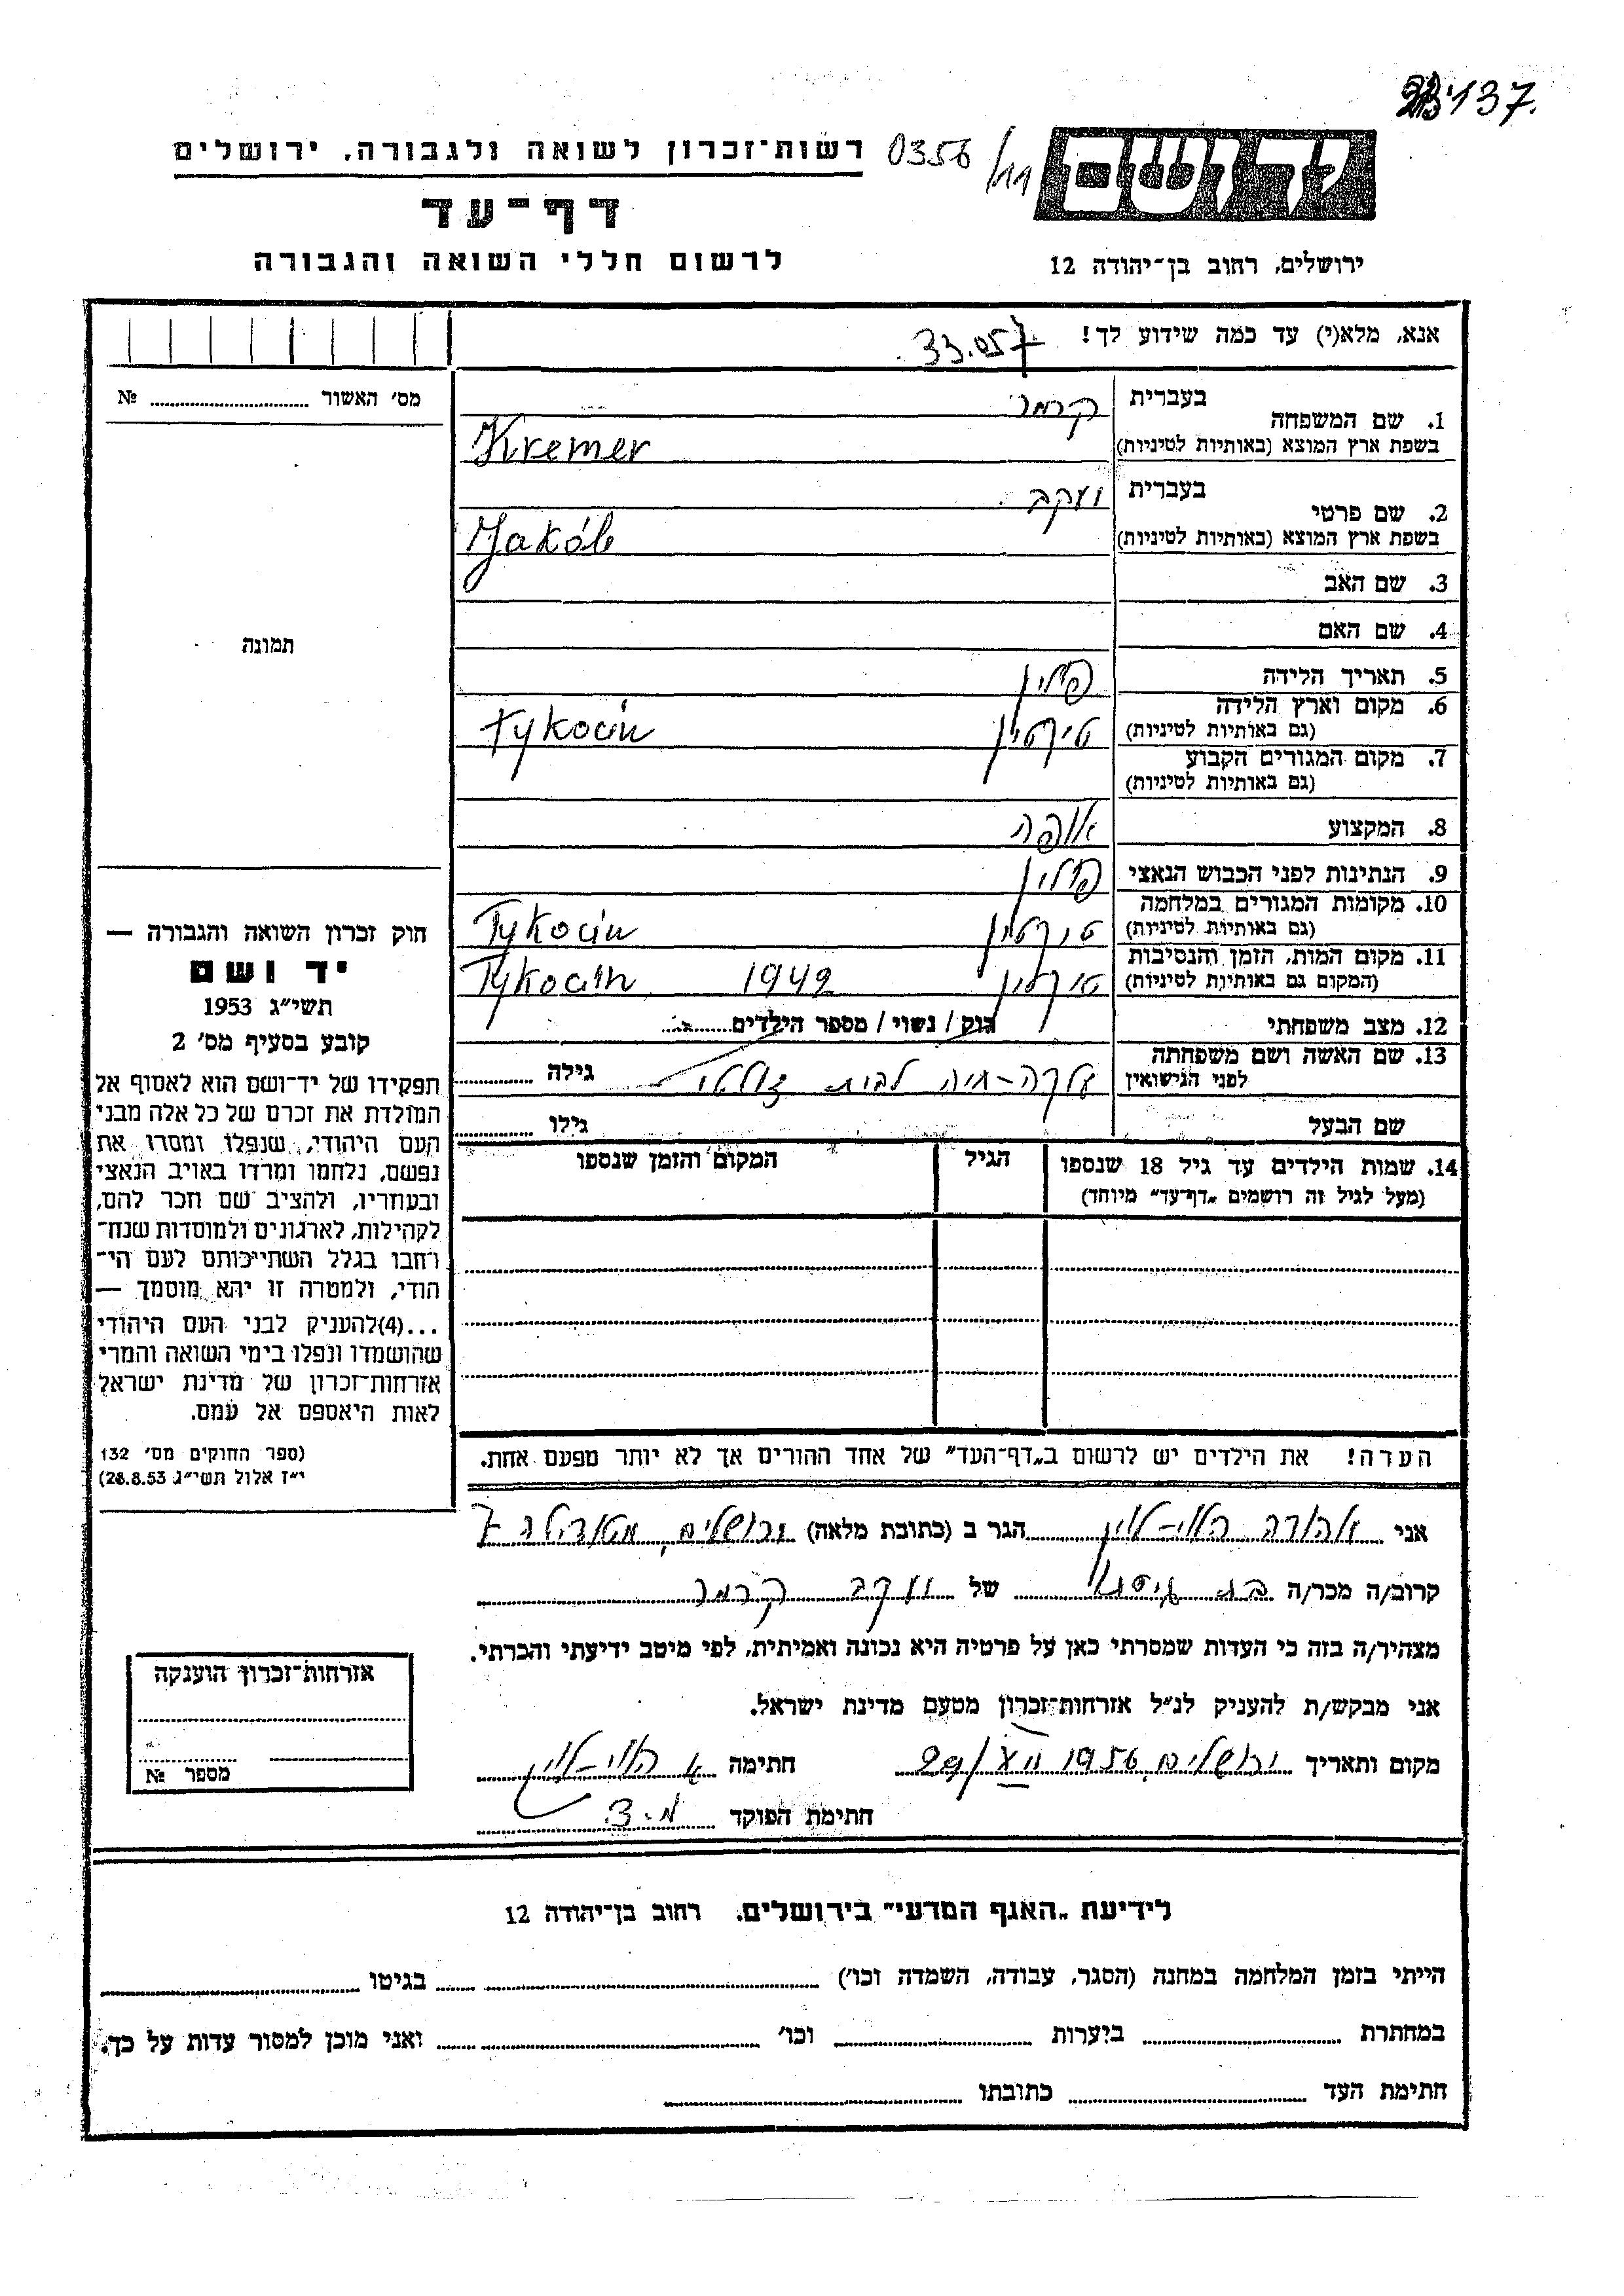 137.
רשות־זכרון לשואה ולגבורה, ירושלים 0356/11
ידושם
דף־עד
לרשום חללי השואה והגבורה
ירושלים, רחוב בן־יהודה 12
אנא, מלא(י) עד כמה שידוע לך! 33.057
מס׳ האשור № ........
1. שם המשפחה
בעברית קרמר
בשפת ארץ המוצא (באותיות לטיניות) Kremer
2. שם פרטי
בעברית יעקב
בשפת ארץ המוצא (באותיות לטיניות) Jakób
3. שם האב
4. שם האם
תמונה
5. תאריך הלידה
פולין
6. מקום וארץ הלידה
(גם באותיות לטיניות) טיקטין Tykocin
7. מקום המגורים הקבוע
(גם באותיות לטיניות)
8. המקצוע אופה
9. הנתינות לפני הכבוש הנאצי פולין
10. מקומות המגורים במלחמה
(גם באותיות לטיניות) טיקטין Tykocin
11. מקום המות, הזמן והנסיבות
(המקום גם באותיות לטיניות) טיקטין 1942 Tykocin
12. מצב משפחתי רוק / נשוי / מספר הילדים
13. שם האשה ושם משפחתה
לפני הנישואין לבית גילה
שם הבעל גילו
14. שמות הילדים עד גיל 18 שנספו
(מעל לגיל זה רושמים „דף־עד״ מיוחד)
הגיל
המקום והזמן שנספו
הערה! את הילדים יש לרשום ב„דף־העד״ של אחד ההורים אך לא יותר מפעם אחת.
חוק זכרון השואה והגבורה —
יד ושם
תשי״ג 1953
קובע בסעיף מס׳ 2
תפקידו של יד־ושם הוא לאסוף אל
המולדת את זכרם של כל אלה מבני
העם היהודי, שנפלו ומסרו את
נפשם, נלחמו ומרדו באויב הנאצי
ובעוזריו, ולהציב שם וזכר להם,
לקהילות, לארגונים ולמוסדות שנח־
רבו בגלל השתייכותם לעם הי־
הודי, ולמטרה זו יהא מוסמך —
...(4)להעניק לבני העם היהודי
שהושמדו ונפלו בימי השואה והמרי
אזרחות־זכרון של מדינת ישראל
לאות היאספם אל עמם.
(ספר החוקים מס׳ 132
י״ז אלול תשי״ג 28.8.53)
אני אהודה הלוי-לוין הגר ב (כתובת מלאה) ירושלים, 7
קרוב/ה מכר/ה של יעקב קרמר
מצהיר/ה בזה כי העדות שמסרתי כאן על פרטיה היא נכונה ואמיתית, לפי מיטב ידיעתי והכרתי.
אני מבקש/ת להעניק לנ״ל אזרחות־זכרון מטעם מדינת ישראל.
מקום ותאריך ירושלים, 1956 29/ חתימה א הלוי-לוין
חתימת הפוקד
אזרחות־זכרון הוענקה
מספר №
לידיעת „האגף המדעי״ בירושלים, רחוב בן־יהודה 12
הייתי בזמן המלחמה במחנה (הסגר, עבודה, השמדה וכו׳) בגיטו
במחתרת ביערות וכו׳ ואני מוכן למסור עדות על כך.
חתימת העד כתובתו